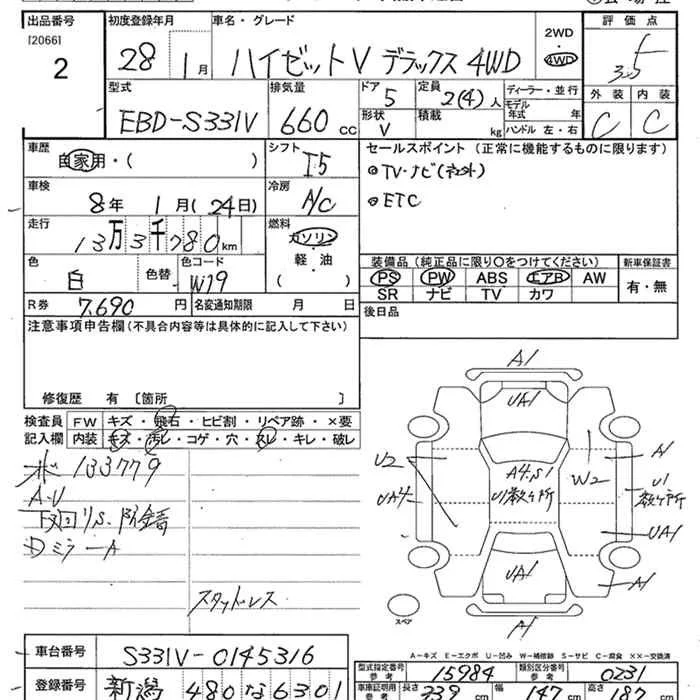 出品番号 初度登録年月 車名・グレード 2WD 評価点
[2066] 28 1月 ハイゼットV デラックス 4WD 4WD 3.5
2
型式 排気量 ドア 定員 ディーラー・並行 外装 内装
EBD-S331V 660cc 5 2(4)人 モデル年式 年 C C
形状 積載
V kg ハンドル 左・右
車歴 シフト セールスポイント (正常に機能するものに限ります)
自家用・( ) I5 TV・ナビ(社外)
車検 冷房 ETC
8年 1月(24日) A/C
走行 燃料
13万3千780km ガソリン
軽・油
( )
色 色替 色コード 装備品(純正品に限り○をつけてください) 新車保証書
白 W19 PS PW ABS エアB AW 有・無
SR ナビ TV カワ
R券 7,690円 名変通知期限 月 日 後日品
注意事項申告欄(不具合内容等は具体的に記入して下さい)
修復歴 有 〔箇所 〕
検査員 FW キズ・飛石・ヒビ割・リペア跡・×要
記入欄 内装 キズ・汚レ・コゲ・穴・スレ・キレ・破レ
133779
A・U
下回りS.防錆
Dミラー A
スタッドレス
A1
UA1
U2
UA4
A4.S1
U1数ヶ所
W2
A1
U1
数ヶ所
UA1
UA1
A1
A1
スペア
A－キズ E－エクボ U－凹み W－補修跡 S－サビ C－腐食 ××－交換済
車台番号 S331V-0145316 型式指定番号 参考 15984 類別区分番号 参考 0231
登録番号 新潟 480 な 6301 車庫証明用 参考 長さ 339cm 幅 147cm 高さ 187cm